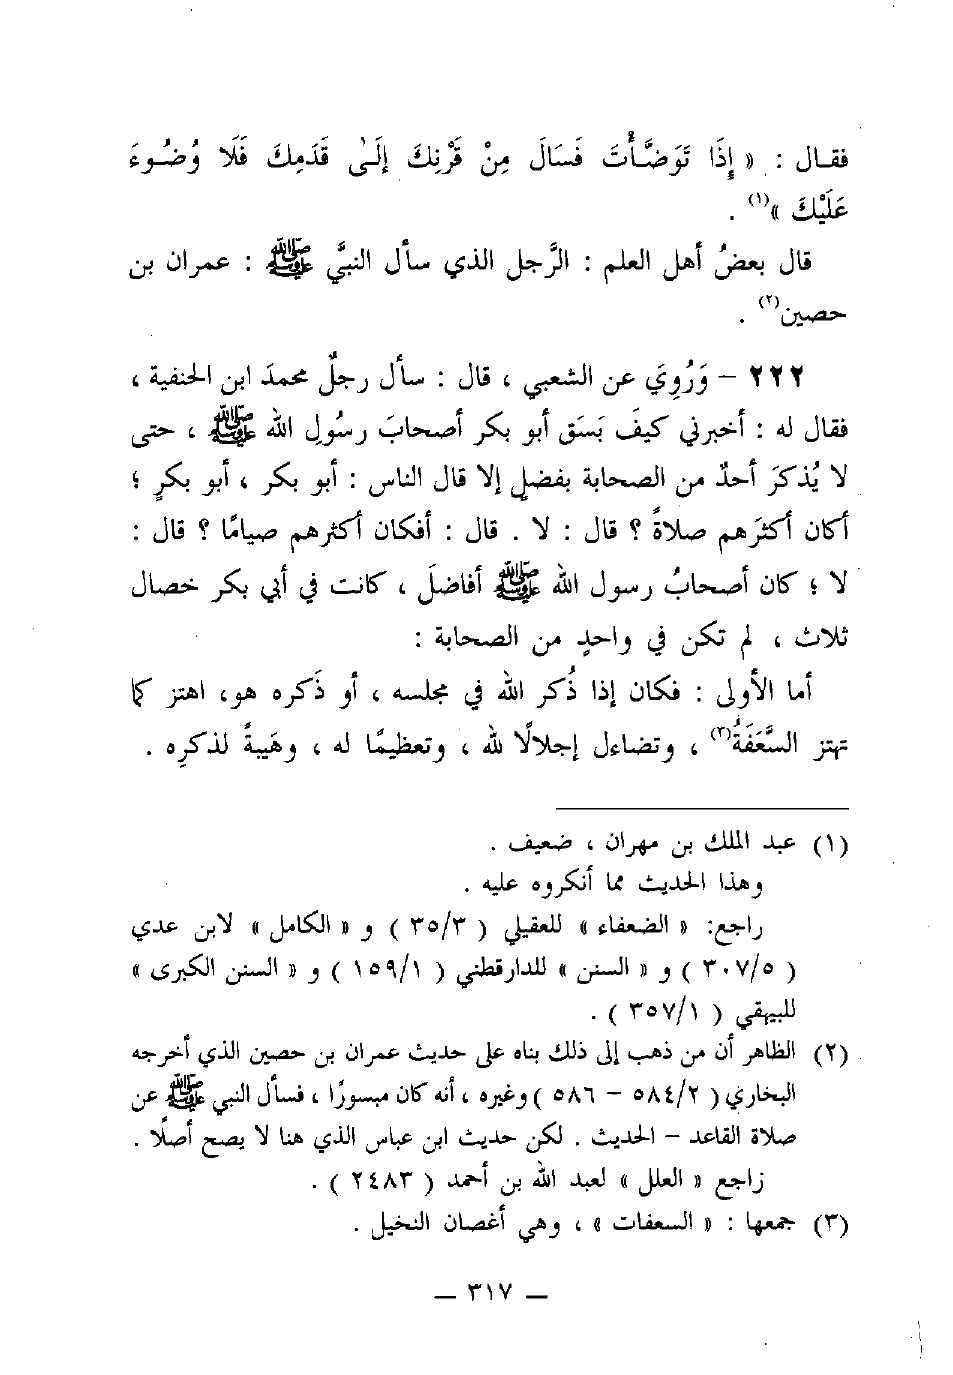 فقـال : « إِذَا تَوَضَّـأْتَ فَسَالَ مِنْ قَرْنِكَ إِلَـىٰ قَدَمِكَ فَلَا وُضُـوءَ
عَلَيْكَ »(١) .
قال بعضُ أهل العلم : الرَّجل الذي سأل النبيَّ ﷺ : عمران بن
حصين(٢) .
٢٢٢ – وَرُوِيَ عن الشعبي ، قال : سأل رجلٌ محمدَ ابن الحنفية ،
فقال له : أخبرني كيفَ بَسَق أبو بكر أصحابَ رسُولِ الله ﷺ ، حتى
لا يُذكرَ أحدٌ من الصحابة بفضلٍ إلا قال الناس : أبو بكر ، أبو بكرٍ ؛
أكان أكثرَهم صلاةً ؟ قال : لا . قال : أفكان أكثرهم صيامًا ؟ قال :
لا ؛ كان أصحابُ رسول الله ﷺ أفاضلَ ، كانت في أبي بكر خصال
ثلاث ، لم تكن في واحدٍ من الصحابة :
أما الأولى : فكان إذا ذُكر الله في مجلسه ، أو ذَكره هو، اهتز كما
تهتز السَّعَفَةُ(٣) ، وتضاءل إجلالًا لله ، وتعظيمًا له ، وهَيبةً لذكرِه .
(١) عبد الملك بن مهران ، ضعيف .
وهذا الحديث مما أنكروه عليه .
راجع: « الضعفاء » للعقيلي ( ٣٥/٣ ) و « الكامل » لابن عدي
( ٣٠٧/٥ ) و « السنن » للدارقطني ( ١٥٩/١ ) و « السنن الكبرى »
للبيهقي ( ٣٥٧/١ ) .
(٢) الظاهر أن من ذهب إلى ذلك بناه على حديث عمران بن حصين الذي أخرجه
البخاري ( ٥٨٤/٢ – ٥٨٦ ) وغيره ، أنه كان مبسورًا ، فسأل النبي ﷺ عن
صلاة القاعد – الحديث . لكن حديث ابن عباس الذي هنا لا يصح أصلًا .
راجع « العلل » لعبد الله بن أحمد ( ٢٤٨٣ ) .
(٣) جمعها : « السعفات » ، وهي أغصان النخيل .
— ٣١٧ —